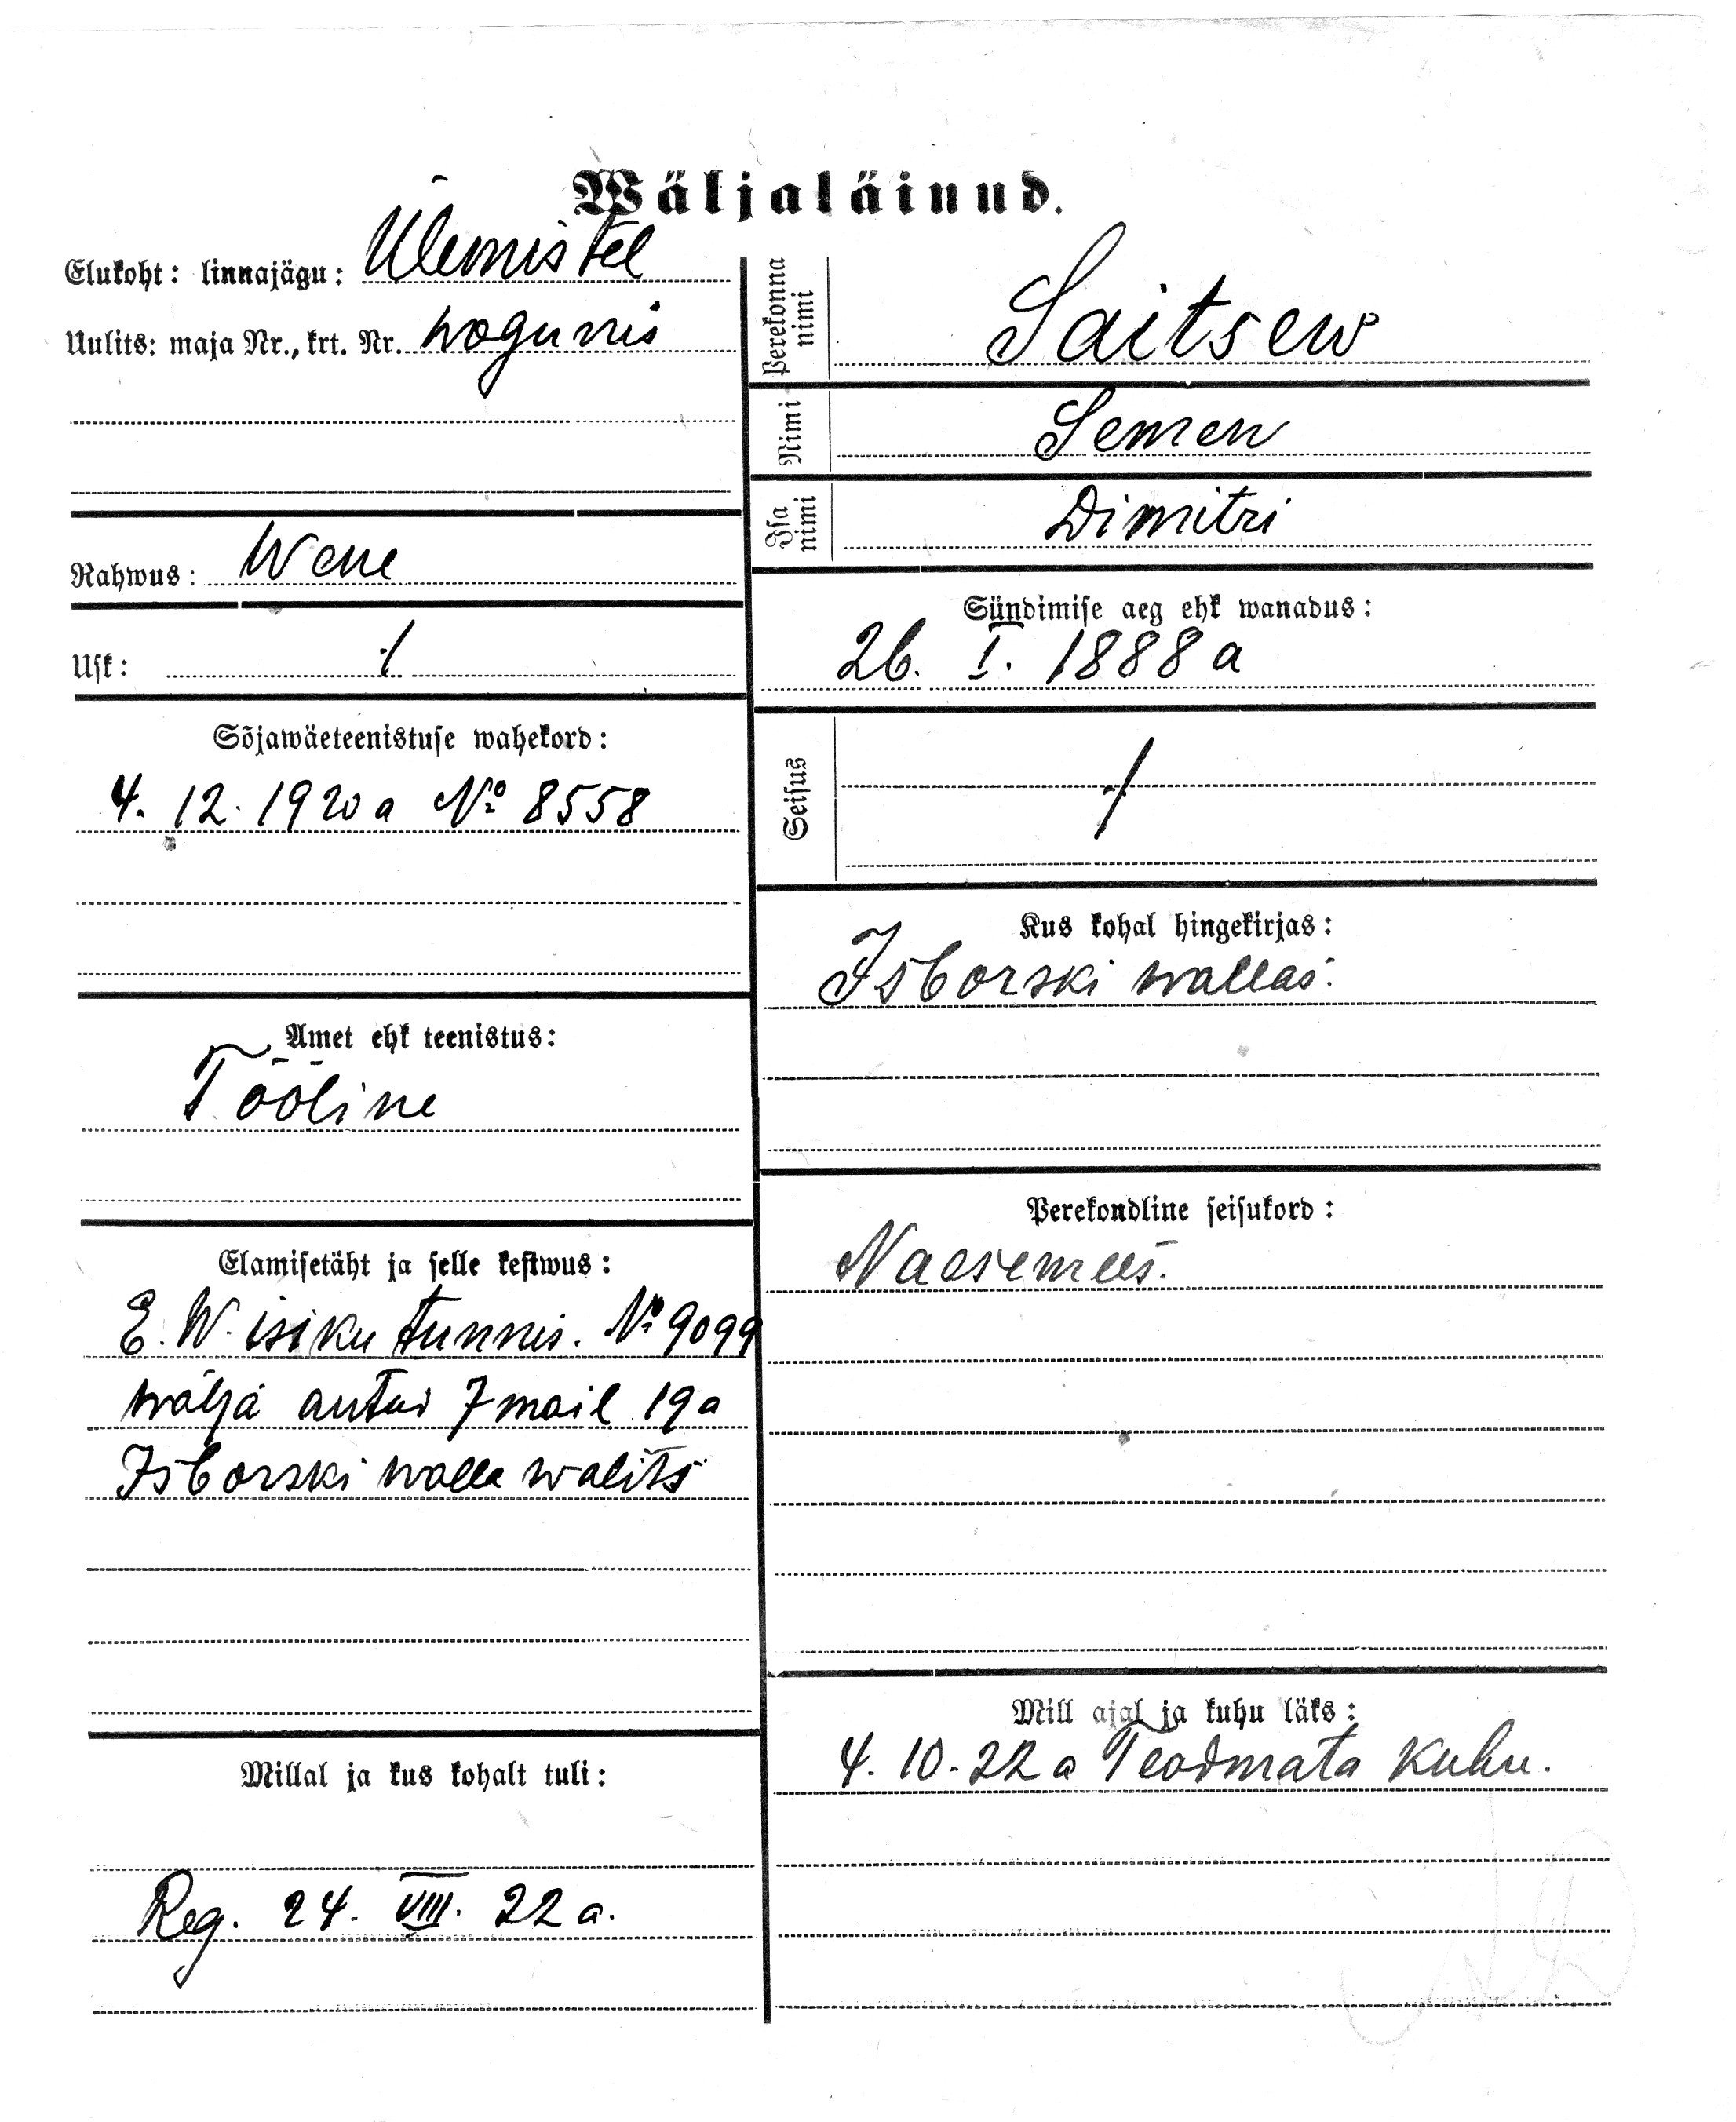 Wäljaläinud.
Elukoht: linnajägu: Ülemistel
Uulits: maja Nr., krt. Nr. wogunis
Rahwus: Wene
Usk: ./.
Sõjawäeteenistuse wahekord:
4. 12. 1920 a No 8558
Amet ehk teenistus:
Tööline
Elamisetäht ja selle kestwus:
E. W. isiku tunnis. No 9099
wälja antud 7 mail 19 a
Isborski walla walits
Millal ja kus kohalt tuli:
Reg. 24. VIII. 22 a.
Perekonna nimi
Saitsew
Nimi
Semen
Isa nimi
Dimitri
Sündimise aeg ehk wanadus:
26. I. 1888 a
Seisus
./.
Kus kohal hingekirjas:
Isborski wallas.
Perekondline seisukord:
Naesemees.
Mill ajal ja kuhu läks:
4. 10. 22 a Teadmata kuhu.